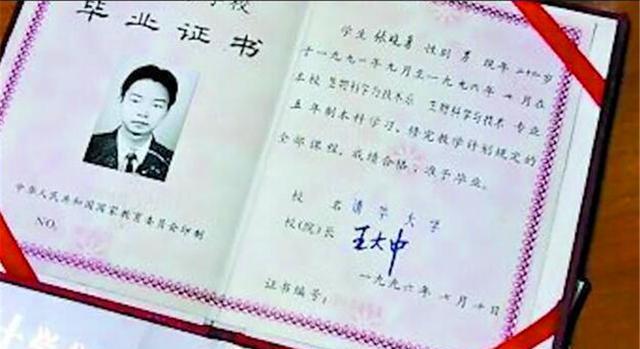 学校
毕业证书
中华人民共和国国家教育委员会印制
NO.
学生 张晓勇 性别 男 现年 二十二岁
于一九九一年九月至一九九六年七月在
本校 生物科学与技术系 生物科学与技术 专业
五年制本科学习，修完教学计划规定的
全部课程，成绩合格，准予毕业。
校 名 清华大学
校（院）长 王大中
一九九六年七月十日
证书编号：